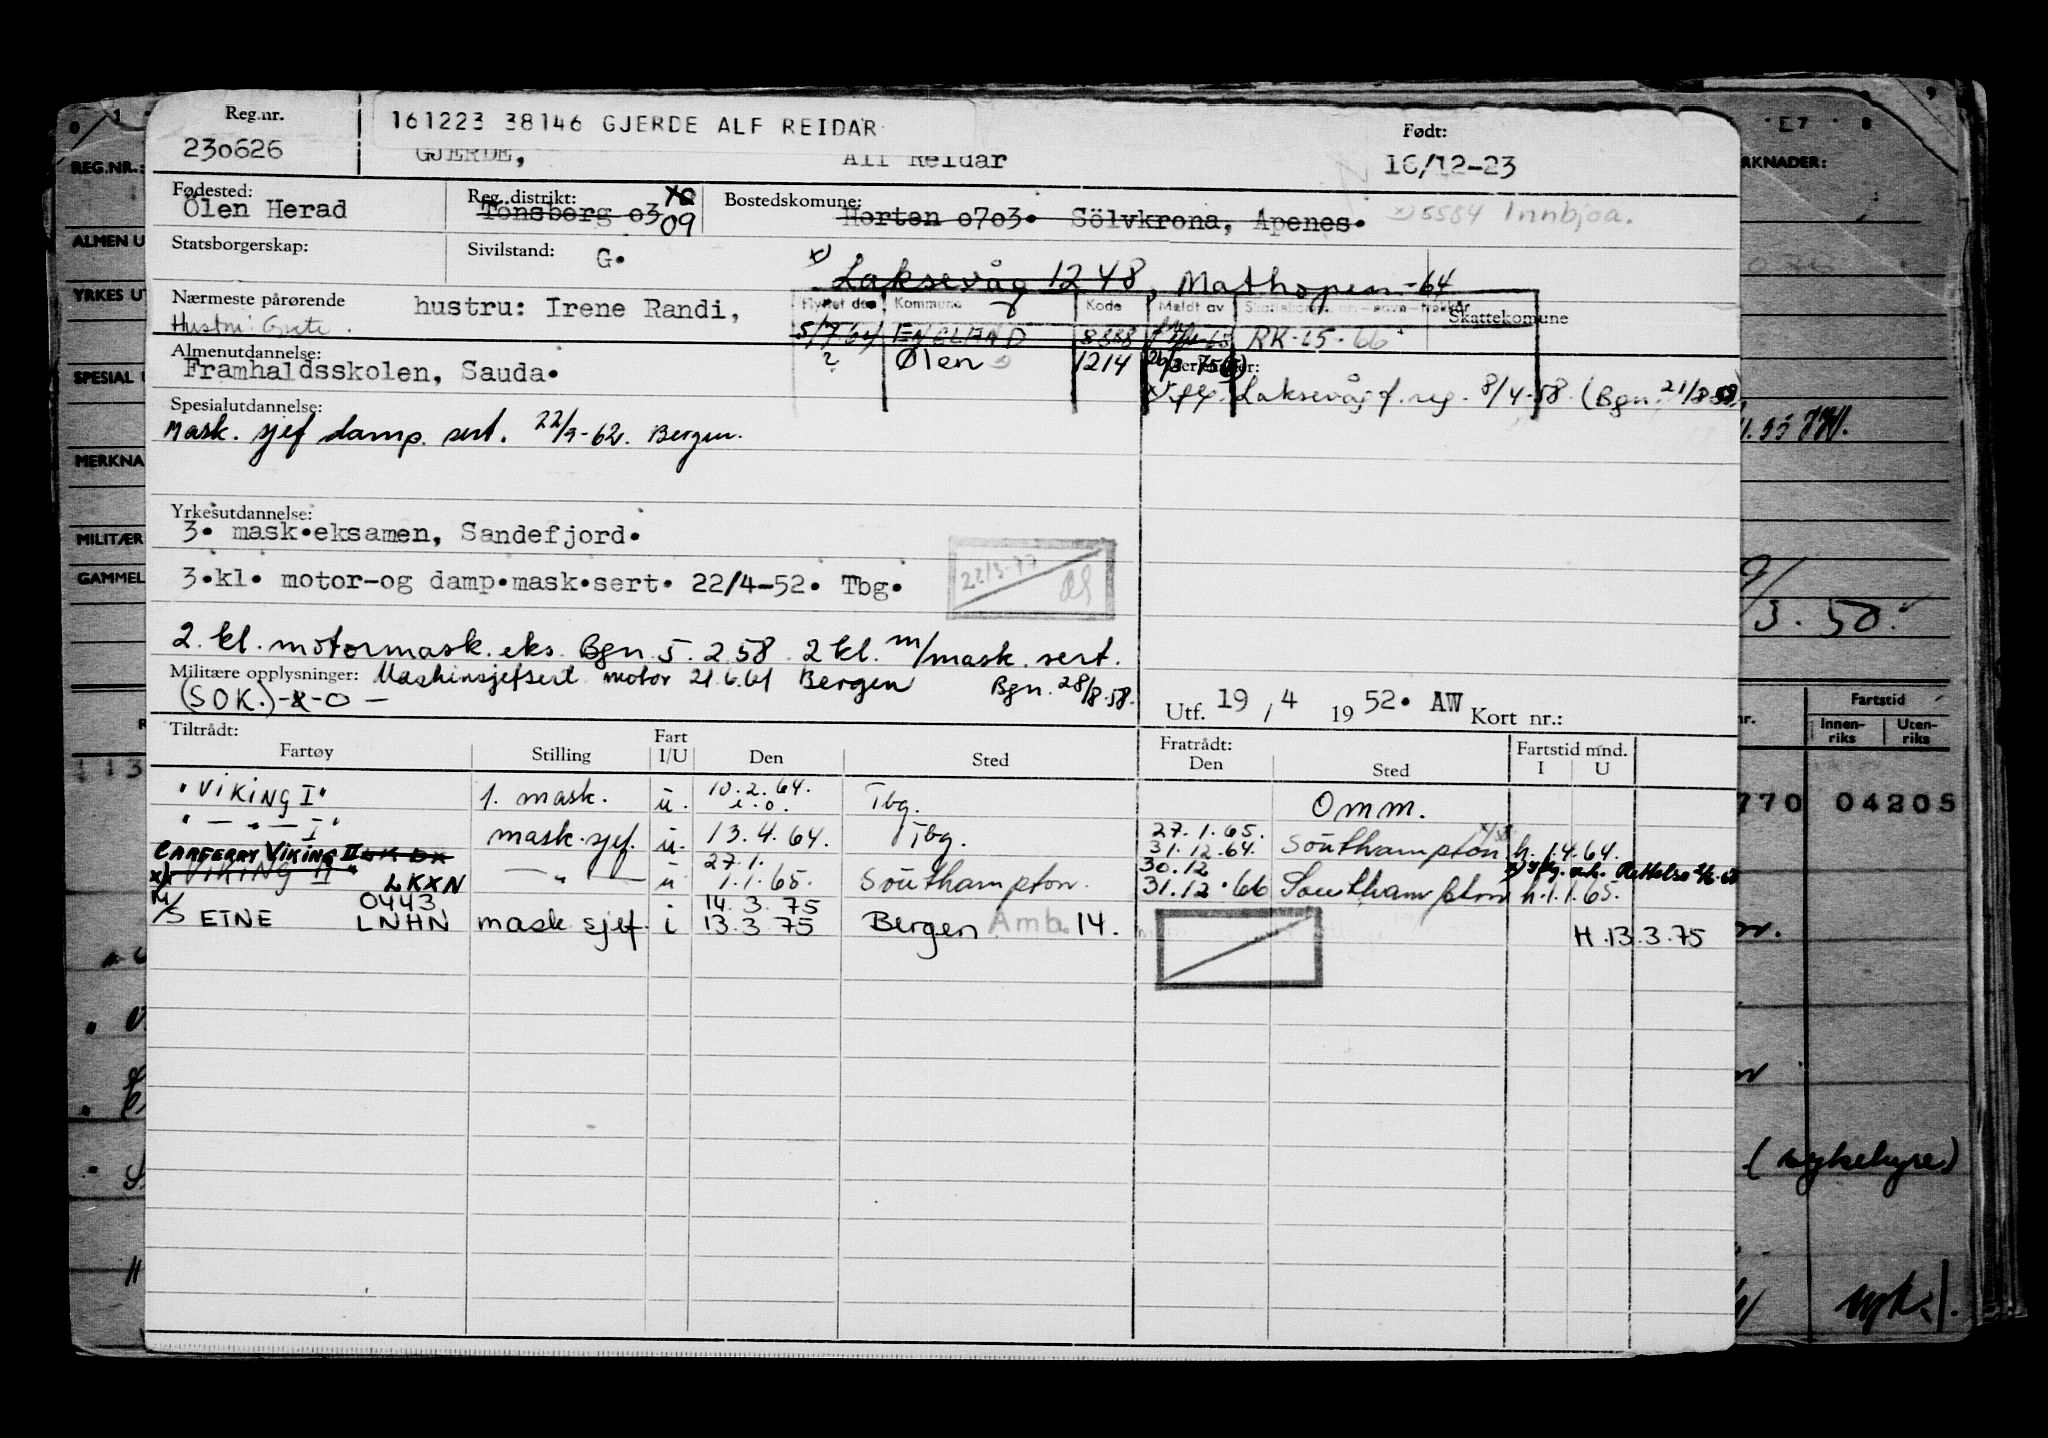 Reg.nr.
161223 38146 GJERDE ALF REIDAR
Født:
230626
GJERDE, Alf Reidar
16/12-23
REG.NR.:
RKNADER:
Fødested:
Ølen Herad
Reg. distrikt:
Tønsberg 03
09
Bostedskomune:
Horten 0703. Sölvkrona, Apenes.
x) 5584 Innbjoa.
ALMEN U
Statsborgerskap:
Sivilstand: G.
x) Laksevåg 1248, Mathopen -64
YRKES UT
Nærmeste pårørende
hustru: Irene Randi,
Hustru: Grete.
Flyttet den Kommune Kode Meldt av
Skattekomune
5/7-64 ENGLAND 8888 RK-15-66
? Ølen 1214
Almenutdannelse:
Framhaldsskolen, Sauda.
Merknader:
x) fly. Laksevåg f. reg. 8/4-58 (Bgn. 21/8-58)
SPESIAL
Spesialutdannelse:
Mask. sjef damp. sert. 22/9-62. Bergen.
MERKNA
Yrkesutdannelse:
3. mask.eksamen, Sandefjord.
MILITÆR
22/3-77
3.kl. motor-og damp.mask.sert. 22/4-52. Tbg.
GAMMEL
3.50.
2. kl. motormask. eks. Bgn 5.2.58 2 kl. m/mask. sert.
Bgn. 28/8-58.
Militære opplysninger: Maskinsjefsert motor 21.6.61 Bergen
(SOK.)-x-O-
Utf. 19 / 4 19 52. AW Kort nr.:
Fartstid
Innen-
riks
Uten-
riks
Tiltrådt:
Fartøy
Stilling
Fart
I/U
Den
Sted
Fratrådt:
Den
Sted
Fartstid mnd.
I U
"VIKING I" 1. mask. u. 10.2.64. i.o. Tbg. Omm.
770 04205
" — " — I" mask.sjef. u. 13.4.64. Tbg. 27.1.65. 31.12.64. Southampton h. 1.4.64.
CARFERRY VIKING II
x) VIKING II" LKXN — " — u 27.1. 1.1.65. Southampton. 30.12 31.12.66 Southampton h.1.1.65.
M/S ETNE 0443 LNHN mask sjef i 14.3.75 13.3.75 Bergen Amb. 14. H.13.3.75
(sykehyre)
syk.